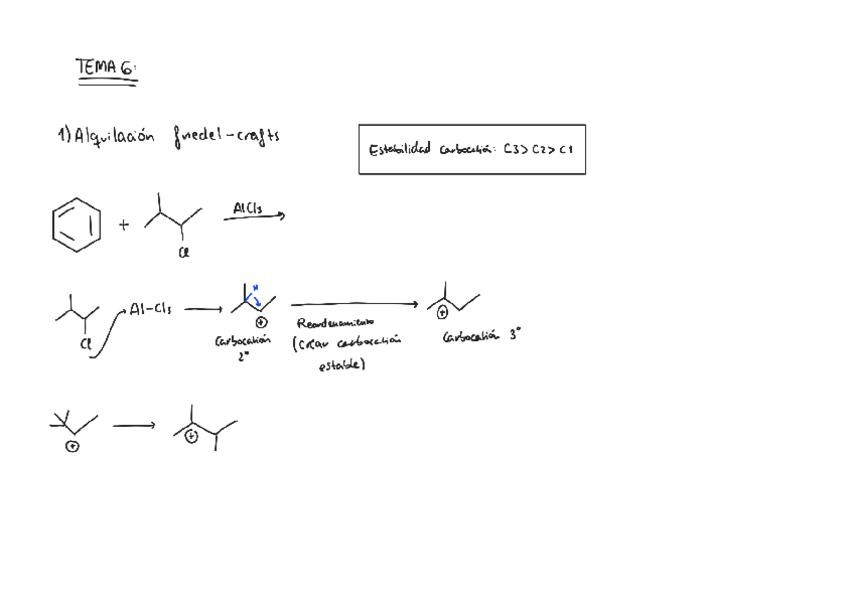 TEMA 6:
1) Alquilación friedel-crafts
Estabilidad carbocatión: C3 > C2 > C1
+
AlCl3
Cl
Al-Cl3
Cl
H
+
Carbocatión
2°
Reordenamiento
(crear carbocatión
estable)
+
Carbocatión 3°
+
+